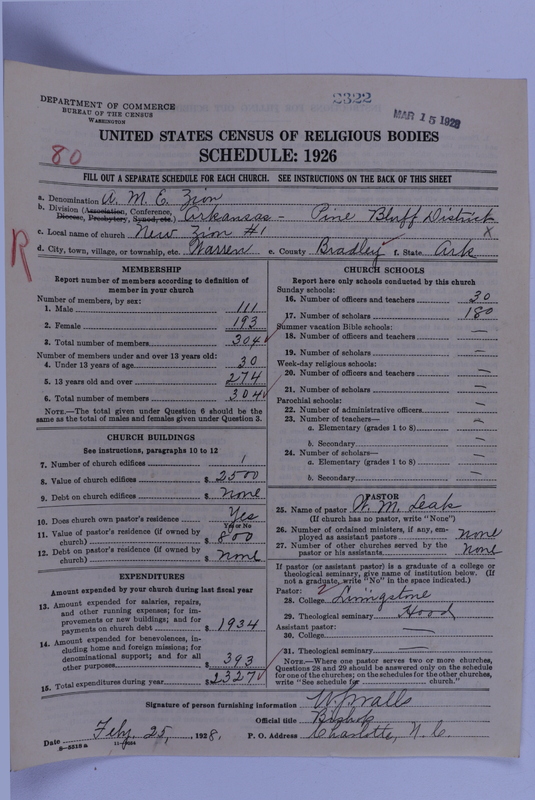 2322
MAR 15 1928
DEPARTMENT OF COMMERCE
BUREAU OF THE CENSUS
WASHINGTON
UNITED STATES CENSUS OF RELIGIOUS BODIES
SCHEDULE: 1926
80
FILL OUT A SEPARATE SCHEDULE FOR EACH CHURCH. SEE INSTRUCTIONS ON THE BACK OF THIS SHEET
a. Denomination A. M. E. Zion
b. Division (Association, Conference, Diocese, Presbytery, Synod, etc.) Arkansas - Pine Bluff District
c. Local name of church New Zion #1 X
d. City, town, village, or township, etc. Warren e. County Bradley f. State Ark
R
MEMBERSHIP
Report number of members according to definition of
member in your church
Number of members, by sex:
1. Male 111
2. Female 193
3. Total number of members 304
Number of members under and over 13 years old:
4. Under 13 years of age 30
5. 13 years old and over 274
6. Total number of members 304
NOTE.—The total given under Question 6 should be
same as the total of males and females given under Question 3.
CHURCH BUILDINGS
See instructions, paragraphs 10 to 12
7. Number of church edifices 1
8. Value of church edifices $ 2500
9. Debt on church edifices $ none
10. Does church own pastor's residence Yes
Yes or No
11. Value of pastor's residence (if owned by
church) $ 800
12. Debt on pastor's residence (if owned by
church) $ none
EXPENDITURES
Amount expended by your church during last fiscal year
13. Amount expended for salaries, repairs,
and other running expenses; for im-
provements or new buildings; and for
payments on church debt $ 1934
14. Amount expended for benevolences, in-
cluding home and foreign missions; for
denominational support; and for all
other purposes $ 393
15. Total expenditures during year $ 2327
CHURCH SCHOOLS
Report here only schools conducted by this church
Sunday schools:
16. Number of officers and teachers 30
17. Number of scholars 180
Summer vacation Bible schools:
18. Number of officers and teachers —
19. Number of scholars —
Week-day religious schools:
20. Number of officers and teachers —
21. Number of scholars —
Parochial schools:
22. Number of administrative officers —
23. Number of teachers—
a. Elementary (grades 1 to 8) —
b. Secondary —
24. Number of scholars—
a. Elementary (grades 1 to 8) —
b. Secondary —
PASTOR
25. Name of pastor W. M. Leak
(If church has no pastor, write "None")
26. Number of ordained ministers, if any, em-
ployed as assistant pastors none
27. Number of other churches served by the
pastor or his assistants none
If pastor (or assistant pastor) is a graduate of a college or
theological seminary, give name of institution below. (If
not a graduate, write "No" in the space indicated.)
Pastor:
28. College Livingstone
29. Theological seminary Hood
Assistant pastor:
30. College —
31. Theological seminary —
NOTE.—Where one pastor serves two or more churches,
Questions 28 and 29 should be answered only on the schedule
for one of the churches; on the schedules for the other churches,
write "See schedule for church."
Signature of person furnishing information W J Walls
Official title Bishop
Date Feby. 25, 1928. P. O. Address Charlotte, N. C.